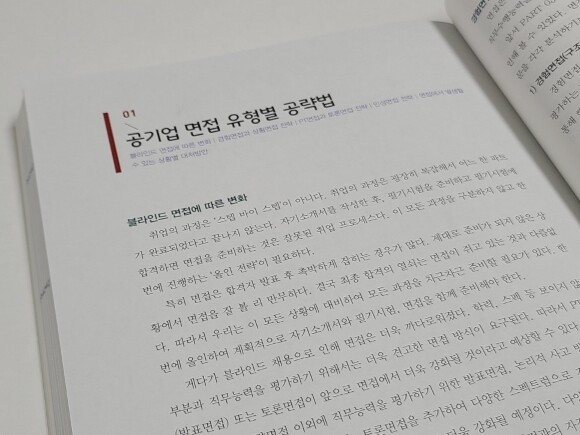 01
공기업 면접 유형별 공략법
블라인드 면접에 따른 변화 | 경험면접과 상황면접 전략 | PT면접과 토론면접 전략 | 인성면접 전략 | 면접에서 발생할
수 있는 상황별 대처방안
블라인드 면접에 따른 변화
취업의 과정은 '스텝 바이 스텝'이 아니다. 취업의 과정은 굉장히 복잡해서 어느 한 파트
가 완료되었다고 끝나지 않는다. 자기소개서를 작성한 후, 필기시험을 준비하고 필기시험에
합격하면 면접을 준비하는 것은 잘못된 취업 프로세스다. 이 모든 과정을 구분하지 않고 한
번에 진행하는 '올인 전략'이 필요하다.
특히 면접은 합격자 발표 후 촉박하게 잡히는 경우가 많다. 제대로 준비가 되지 않은 상
황에서 면접을 잘 볼 리 만무하다. 결국 최종 합격의 열쇠는 면접이 쥐고 있는 것과 다름없
다. 따라서 우리는 이 모든 상황에 대비하여 모든 과정을 차근차근 준비할 필요가 있다. 한
번에 올인하여 계획적으로 자기소개서와 필기시험, 면접을 함께 준비해야 한다.
게다가 블라인드 채용으로 인해 면접은 더욱 까다로워졌다. 학력, 스펙 등 보이지 않
부분과 직무능력을 평가하기 위해서는 더욱 견고한 면접 방식이 요구된다. 따라서 P
(발표면접) 또는 토론면접이 앞으로 면접에서 더욱 강화될 것이라고 예상할 수 있다.
면접 이외에 직무능력을 평가하기 위한 발표면접, 논리적 사고
토론면접을 추가하여 다양한 스펙트럼으로
더욱 강화될 예정이다. 다양
앞서 PART
볼 수 있었다.
분을 각각 분석하기
1) 경험면접(구조
경험면접
평가하는
통해